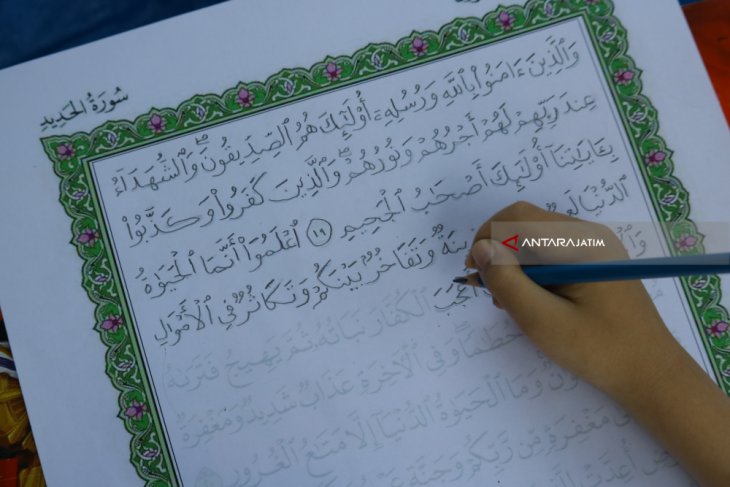 سُورَةُ الحَدِيدِ
وَٱلَّذِينَ ءَامَنُواْ بِٱللَّهِ وَرُسُلِهِۦٓ أُوْلَٰٓئِكَ هُمُ ٱلصِّدِّيقُونَۖ وَٱلشُّهَدَآءُ
عِندَ رَبِّهِمۡ لَهُمۡ أَجۡرُهُمۡ وَنُورُهُمۡۖ وَٱلَّذِينَ كَفَرُواْ وَكَذَّبُواْ
بِـَٔايَٰتِنَآ أُوْلَٰٓئِكَ أَصۡحَٰبُ ٱلۡجَحِيمِ ١٩ ٱعۡلَمُوٓاْ أَنَّمَا ٱلۡحَيَوٰةُ
ٱلدُّنۡيَا وَتَفَاخُرُۢ بَيۡنَكُمۡ وَتَكَاثُرٞ فِي ٱلۡأَمۡوَٰلِ
ٱلۡكُفَّارَ نَبَاتُهُۥ ثُمَّ يَهِيجُ فَتَرَىٰهُ
حُطَٰمٗاۖ وَفِي ٱلۡأٓخِرَةِ عَذَابٞ شَدِيدٞ وَمَغۡفِرَةٞ
وَمَا ٱلۡحَيَوٰةُ ٱلدُّنۡيَآ إِلَّا مَتَٰعُ ٱلۡغُرُورِ
مَغۡفِرَةٖ مِّن رَّبِّكُمۡ وَجَنَّةٍ
أُعِدَّتۡ
ANTARAJATIM